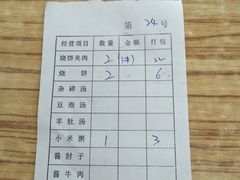 第 24 号
经营项目 数量 金额 打包
烧饼夹肉 2 (本) 22
烧饼 2 6
杂碎汤
豆泡汤
羊肚汤
小米粥 1 3
酱肘子
酱牛肉